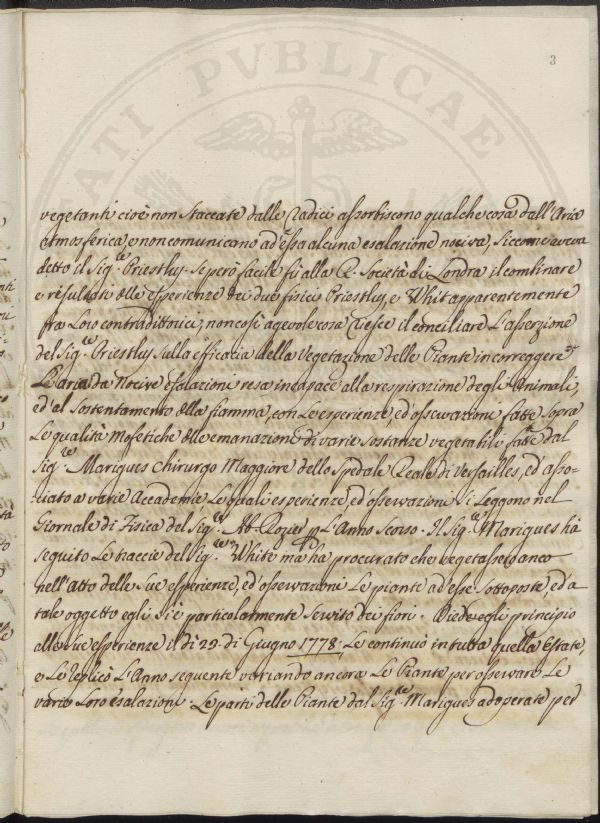 3
vegetanti cioè non staccate dalle radici assorbiscono qualche cosa dall'Aria
atmosferica, e non comunicano ad essa alcuna esalazione nociva, siccome aveva
detto il Sig.re Priestley. Se però facile fù alla R. Società di Londra il combinare
e resultati delle esperienze dei due fisici Priestley, e Whit apparentemente
fra Loro contradittorici, non così agevole cosa riesce il conciliare L'asserzione
del Sig.re Priestley sulla efficacia della vegetazione delle Piante in correggere
L'aria da Nocive esalazioni resa incapace alla respirazione degli Animali,
ed al sostentamento della fiamma, con Le esperienze, ed osservazioni fatte sopra
Le qualità Mofetiche delle emanazioni di varie sostanze vegetabili fatte dal
Sig.re Marigues Chirurgo Maggiore dello Spedale Reale di Versailles, ed asso-
ciato a varie Accademie Le quali esperienze, ed osservazioni si Leggono nel
Giornale di Fisica del Sig.re Ab. Rozier p L'Anno scorso. Il Sig.re Marigues hà
seguito Le traccie del Sig.re White mà ha procurato che vegetassero anco
nell'atto delle sue esperienze, ed osservazioni Le piante ad esse sottoposte, ed a
tale oggetto egli si è particolarmente servito dei fiori. Diede egli principio
alle sue esperienze il dì 29. di Giugno 1778; Le continuò in tutta quella Estate,
e Le replicò L'Anno seguente variando ancora Le Piante per osservare Le
varie Loro esalazioni. Le parti delle Piante dal Sig.re Marigues adoperate per